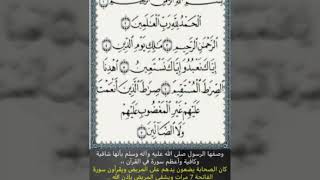 بسم الله الرحمن الرحيم
الْحَمْدُ لِلَّهِ رَبِّ الْعَالَمِينَ ۝
الرَّحْمَٰنِ الرَّحِيمِ ۝ مَالِكِ يَوْمِ الدِّينِ ۝
إِيَّاكَ نَعْبُدُ وَإِيَّاكَ نَسْتَعِينُ ۝ اهْدِنَا
الصِّرَاطَ الْمُسْتَقِيمَ ۝ صِرَاطَ الَّذِينَ أَنْعَمْتَ
عَلَيْهِمْ غَيْرِ الْمَغْضُوبِ عَلَيْهِمْ
وَلَا الضَّالِّينَ ۝
وصفها الرسول صلى الله عليه وآله وسلم بأنها شافية
وكافية وأعظم سورة في القرآن ،،
كان الصحابة يضعون يدهم على المريض ويقرأون سورة
الفاتحة 7 مرات ويشفى المريض بإذن الله